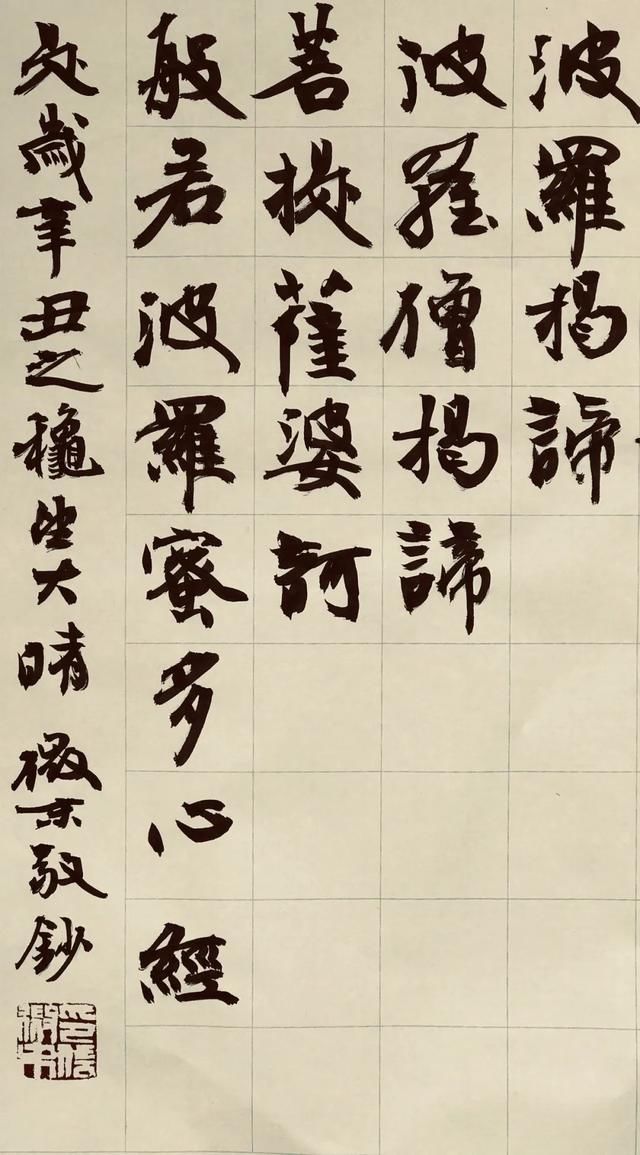 波羅揭諦
波羅僧揭諦
菩提薩婆訶
般若波羅蜜多心經
歲辛丑之穐大晴 微敬鈔